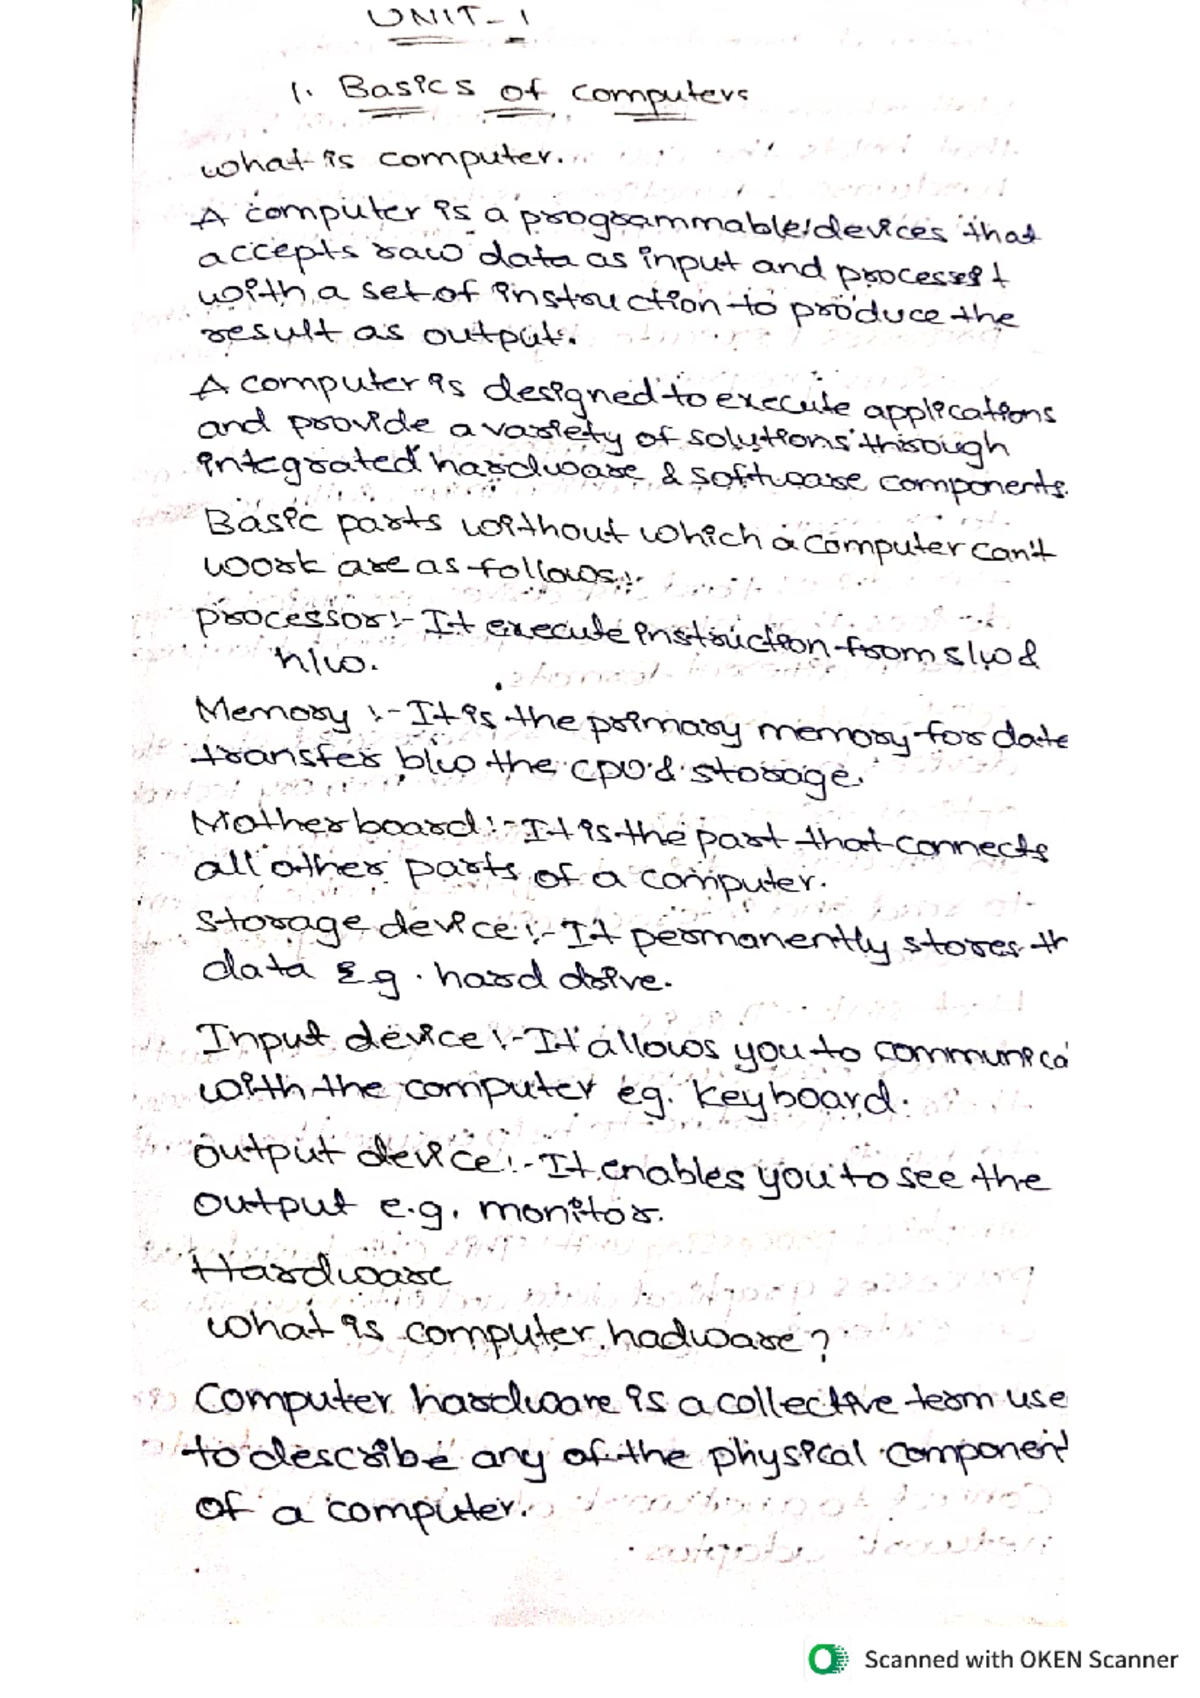 UNIT-1
1. Basics of computers
what is computer.
A computer is a programmable devices that
accepts raw data as input and processes it
with a set of instruction to produce the
result as output.
A computer is designed to execute applications
and provide a variety of solutions through
integrated hardware & software components.
Basic parts without which a computer can't
work are as follows:-
processor:- It execute instruction from s/w &
h/w.
Memory :- It is the primary memory for date
transfer b/w the cpu & storage.
Motherboard:- It is the part that connects
all other parts of a computer.
Storage device:- It permanently stores th
data E.g. hard drive.
Input device:- It allows you to communica
with the computer eg. keyboard.
output device:- It enables you to see the
output e.g. monitor.
Hardware
what is computer hadware?
Computer hardware is a collective term use
to describe any of the physical component
of a computer.
Scanned with OKEN Scanner